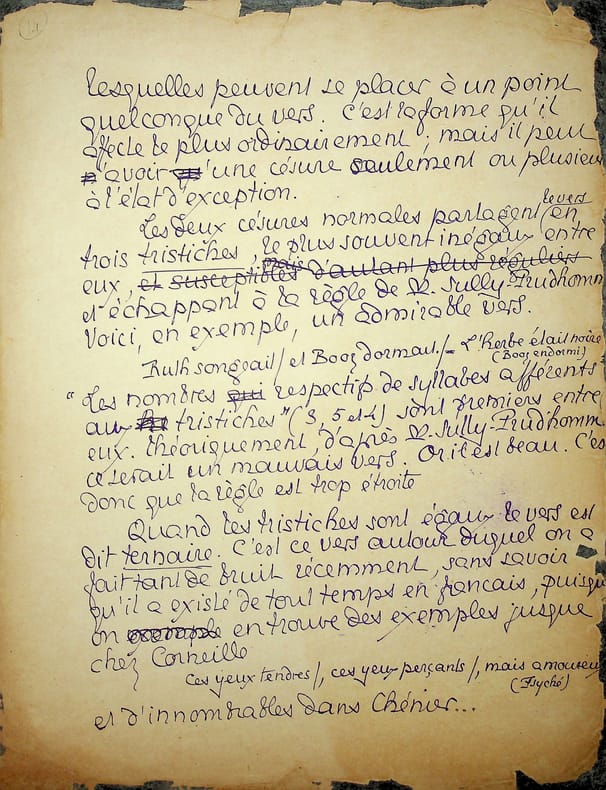 14
lesquelles peuvent se placer à un point
quelconque du vers. C'est la forme qu'il
affecte le plus ordinairement ; mais il peut
n'avoir qu'une césure seulement ou plusieurs
à l'état d'exception.
Les deux césures normales partagent le vers en
trois tristiches, le plus souvent inégaux entre
eux, et susceptibles d'autant plus réguliers
et échappant à la règle de M. Sully-Prudhomme
Voici, en exemple, un admirable vers.
Ruth songeait / et Booz dormait. / L'herbe était noire
(Booz endormi)
"Les nombres qui respectifs de syllabes afférents
aux tristiches" (3, 5 et 4) sont premiers entre
eux. Théoriquement, d'après M. Sully-Prudhomme
ce serait un mauvais vers. Or il est beau. C'est
donc que la règle est trop étroite
Quand les tristiches sont égaux le vers est
dit ternaire. C'est ce vers autour duquel on a
fait tant de bruit récemment, sans savoir
qu'il a existé de tout temps en français, puisqu'
on exemple en trouve des exemples jusque
chez Corneille
Ces yeux tendres /, ces yeux perçants /, mais amoureux
(Psyché)
et d'innombrables dans Chénier...